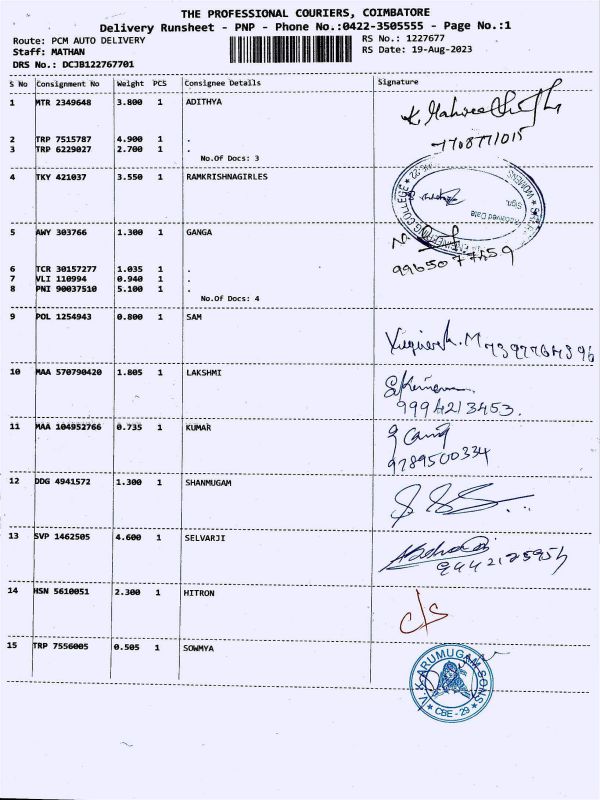 THE PROFESSIONAL COURIERS, COIMBATORE
Delivery Runsheet - PNP - Phone No.:0422-3505555 - Page No.:1
Route: PCM AUTO DELIVERY RS No.: 1227677
Staff: MATHAN RS Date: 19-Aug-2023
DRS No.: DCJB122767701
S No Consignment No Weight PCS Consignee Details Signature
1 MTR 2349648 3.800 1 ADITHYA
7708771015
2 TRP 7515787 4.900 1 .
3 TRP 6229027 2.700 1 .
No.Of Docs: 3
4 TKY 421037 3.550 1 RAMKRISHNAGIRLES
Sign.
Received Date
5 AWY 303766 1.300 1 GANGA
9965077459
6 TCR 30157277 1.035 1 .
7 VLI 110994 0.940 1 .
8 PNI 90037510 5.100 1 .
No.Of Docs: 4
9 POL 1254943 0.800 1 SAM
7397764396
10 MAA 570790420 1.805 1 LAKSHMI
9994213453.
11 MAA 104952766 0.735 1 KUMAR
9789500334
12 DDG 4941572 1.300 1 SHANMUGAM
13 SVP 1462505 4.600 1 SELVARJI
9442125954
14 HSN 5610051 2.300 1 HITRON
C/S
15 TRP 7556005 0.505 1 SOWMYA
V.K. ARUMUGAM SONS
★ CBE - 29 ★